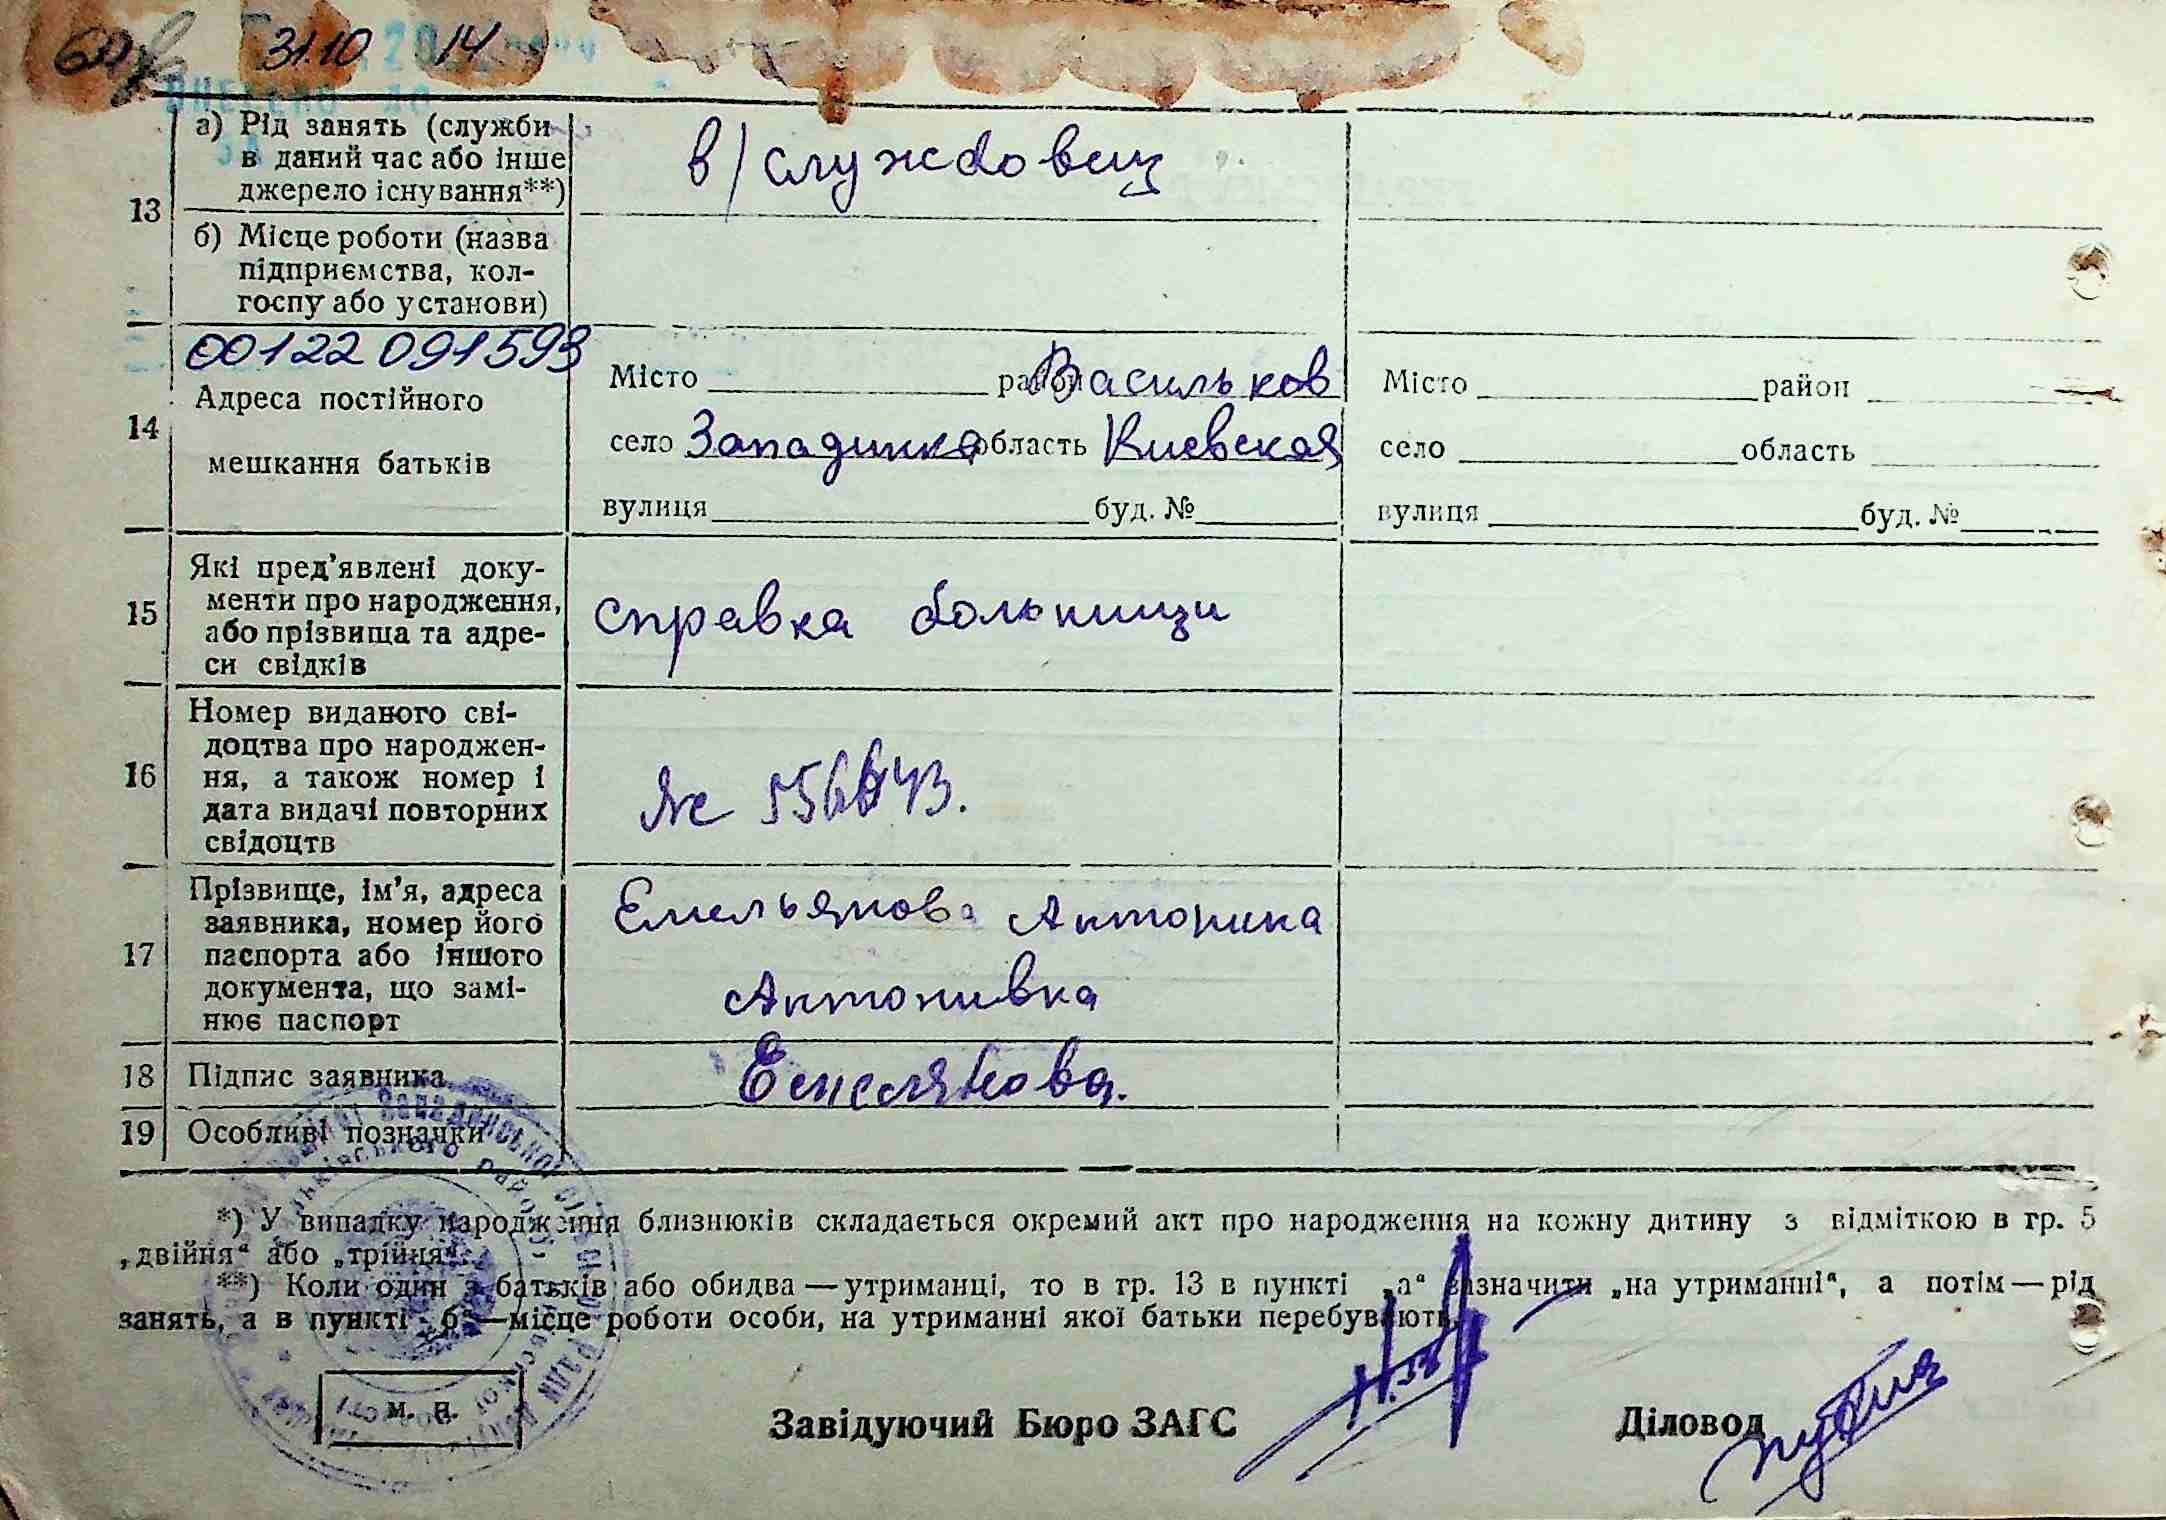 31.10 14
ВНЕСЕНО ДО
13
а) Рід занять (служби
в даний час або інше
джерело існування**)
в/службовец
б) Місце роботи (назва
підприємства, кол-
госпу або установи)
00122091593
14
Адреса постійного
мешкання батьків
Місто район Васильков
село Западинка область Киевская
вулиця буд. №
Місто район
село область
вулиця буд. №
15
Які пред’явлені доку-
менти про народження,
або прізвища та адре-
си свідків
справка больници
16
Номер виданого сві-
доцтва про народжен-
ня, а також номер і
дата видачі повторних
свідоцтв
№
17
Прізвище, ім’я, адреса
заявника, номер його
паспорта або іншого
документа, що замі-
нює паспорт
Емельянова Антонина
Антонивна
18 Підпис заявника
Емелянова.
19 Особливі позначки
*) У випадку народження близнюків складається окремий акт про народження на кожну дитину з відміткою в гр. 5
„двійня“ або „трійця“.
**) Коли один з батьків або обидва — утриманці, то в гр. 13 в пункті „а“ зазначити „на утриманні“, а потім — рід
занять, а в пункті „б“ — місце роботи особи, на утриманні якої батьки перебувають.
м. п.
Завідуючий Бюро ЗАГС
Діловод